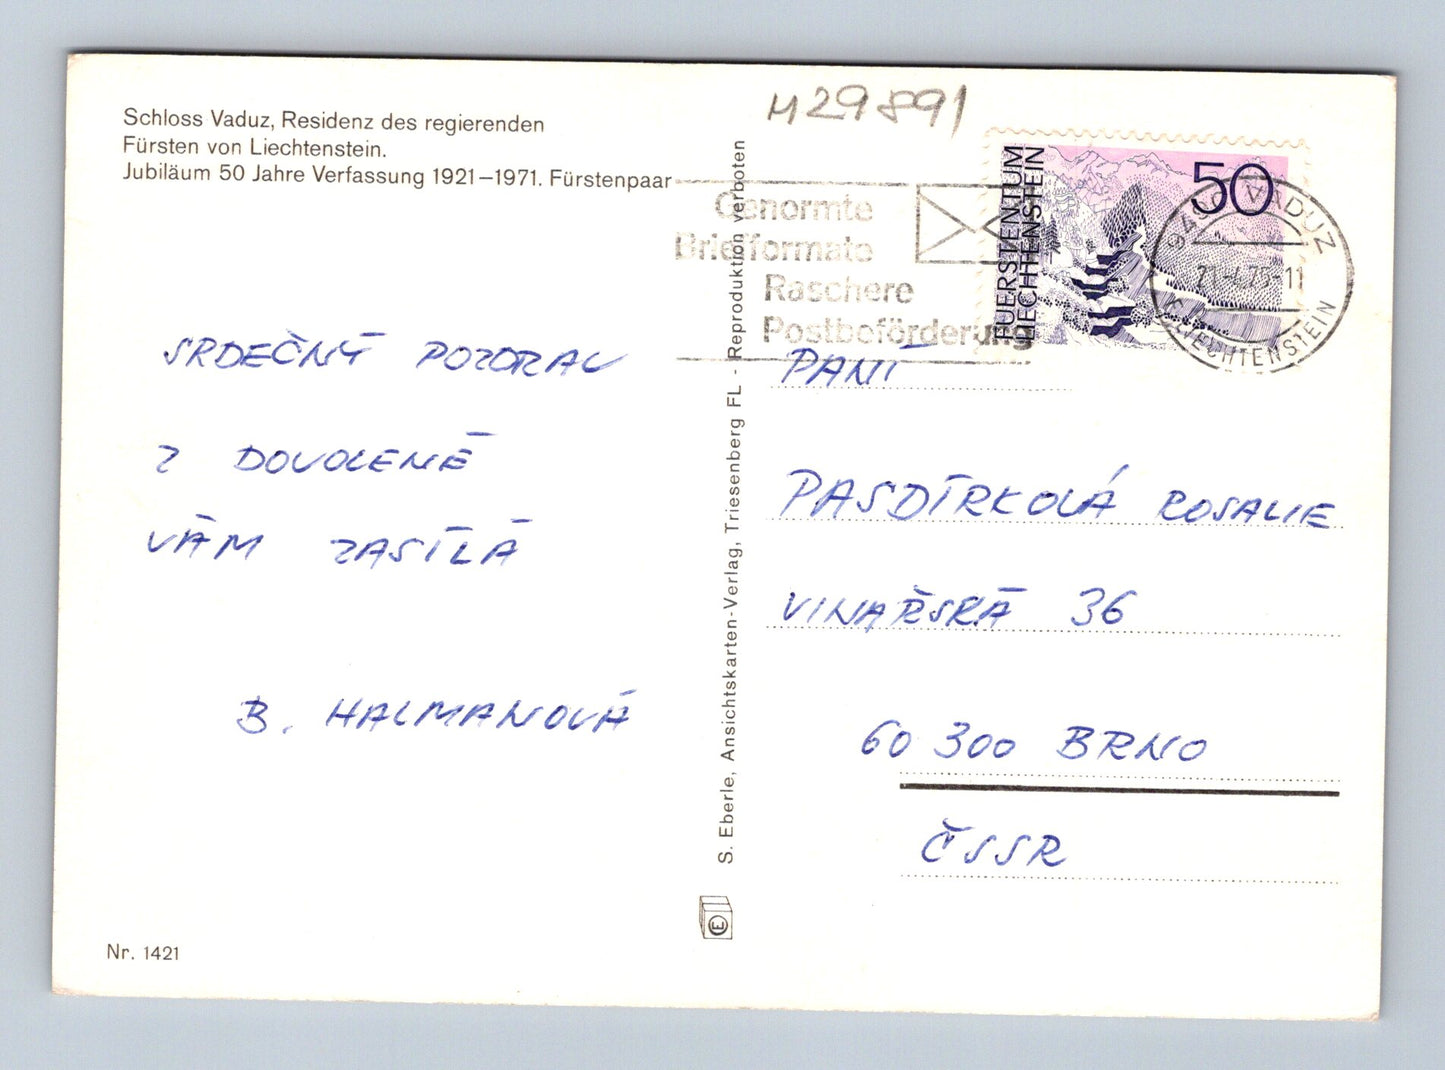 Schloss Vaduz, Residenz des regierenden
Fürsten von Liechtenstein.
Jubiläum 50 Jahre Verfassung 1921–1971. Fürstenpaar
M29891
Genormte
Briefformate
Raschere
Postbeförderung
FUERSTENTUM
LIECHTENSTEIN
50
9490 VADUZ
21-4.75-11
LIECHTENSTEIN
SRDEČNÝ POZDRAV
Z DOVOLENÉ
VÁM ZASÍLÁ
B. HALMANOVÁ
S. Eberle, Ansichtskarten-Verlag, Triesenberg FL - Reproduktion verboten
PANÍ
PASDÍRKOVÁ ROSALIE
VINAŘSKÁ 36
60 300 BRNO
ČSSR
E
Nr. 1421